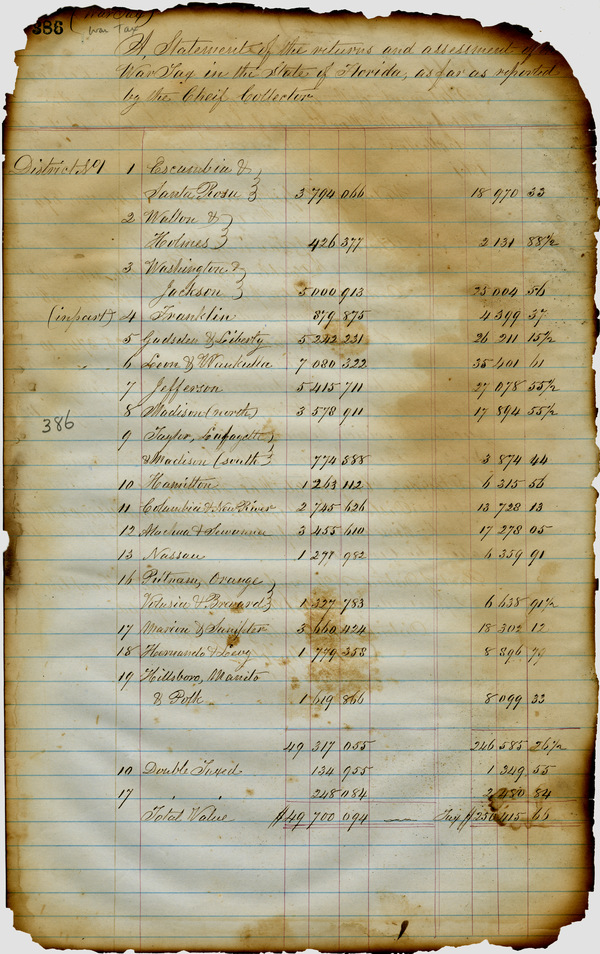 386 (War Tax)
War Tax
A Statement of the returns and assessment of
War Tax in the State of Florida, as far as reported
by the Cheif Collector
District No 1 1 Escambia &
Santa Rosa 3 794 066 18 970 33
2 Walton &
Holmes 426 377 2 131 88½
3 Washington &
Jackson 5 000 913 25 004 56
(in part) 4 Franklin 879 875 4 399 37
5 Gadsden & Liberty 5 242 231 26 211 15½
6 Leon & Wakulla 7 080 322 35 401 61
7 Jefferson 5 415 711 27 078 55½
8 Madison (north) 3 578 911 17 894 55½
386
9 Taylor, Lafayette,
& Madison (south) 774 888 3 874 44
10 Hamilton 1 263 112 6 315 56
11 Columbia & New River 2 745 626 13 728 13
12 Alachua & Suwannee 3 455 610 17 278 05
13 Nassau 1 278 982 6 359 91
16 Putnam, Orange,
Volusia & Brevard 1 327 783 6 638 91½
17 Marion & Sumpter 3 660 424 18 302 12
18 Hernando & Levy 1 779 358 8 896 79
19 Hillsboro, Manito
& Polk 1 619 866 8 099 33
49 317 055 246 585 26½
19 Double Taxed 134 955 1 349 55
17 " " 248 084 2 480 84
Total Value $49 700 094 Tax $250 415 66